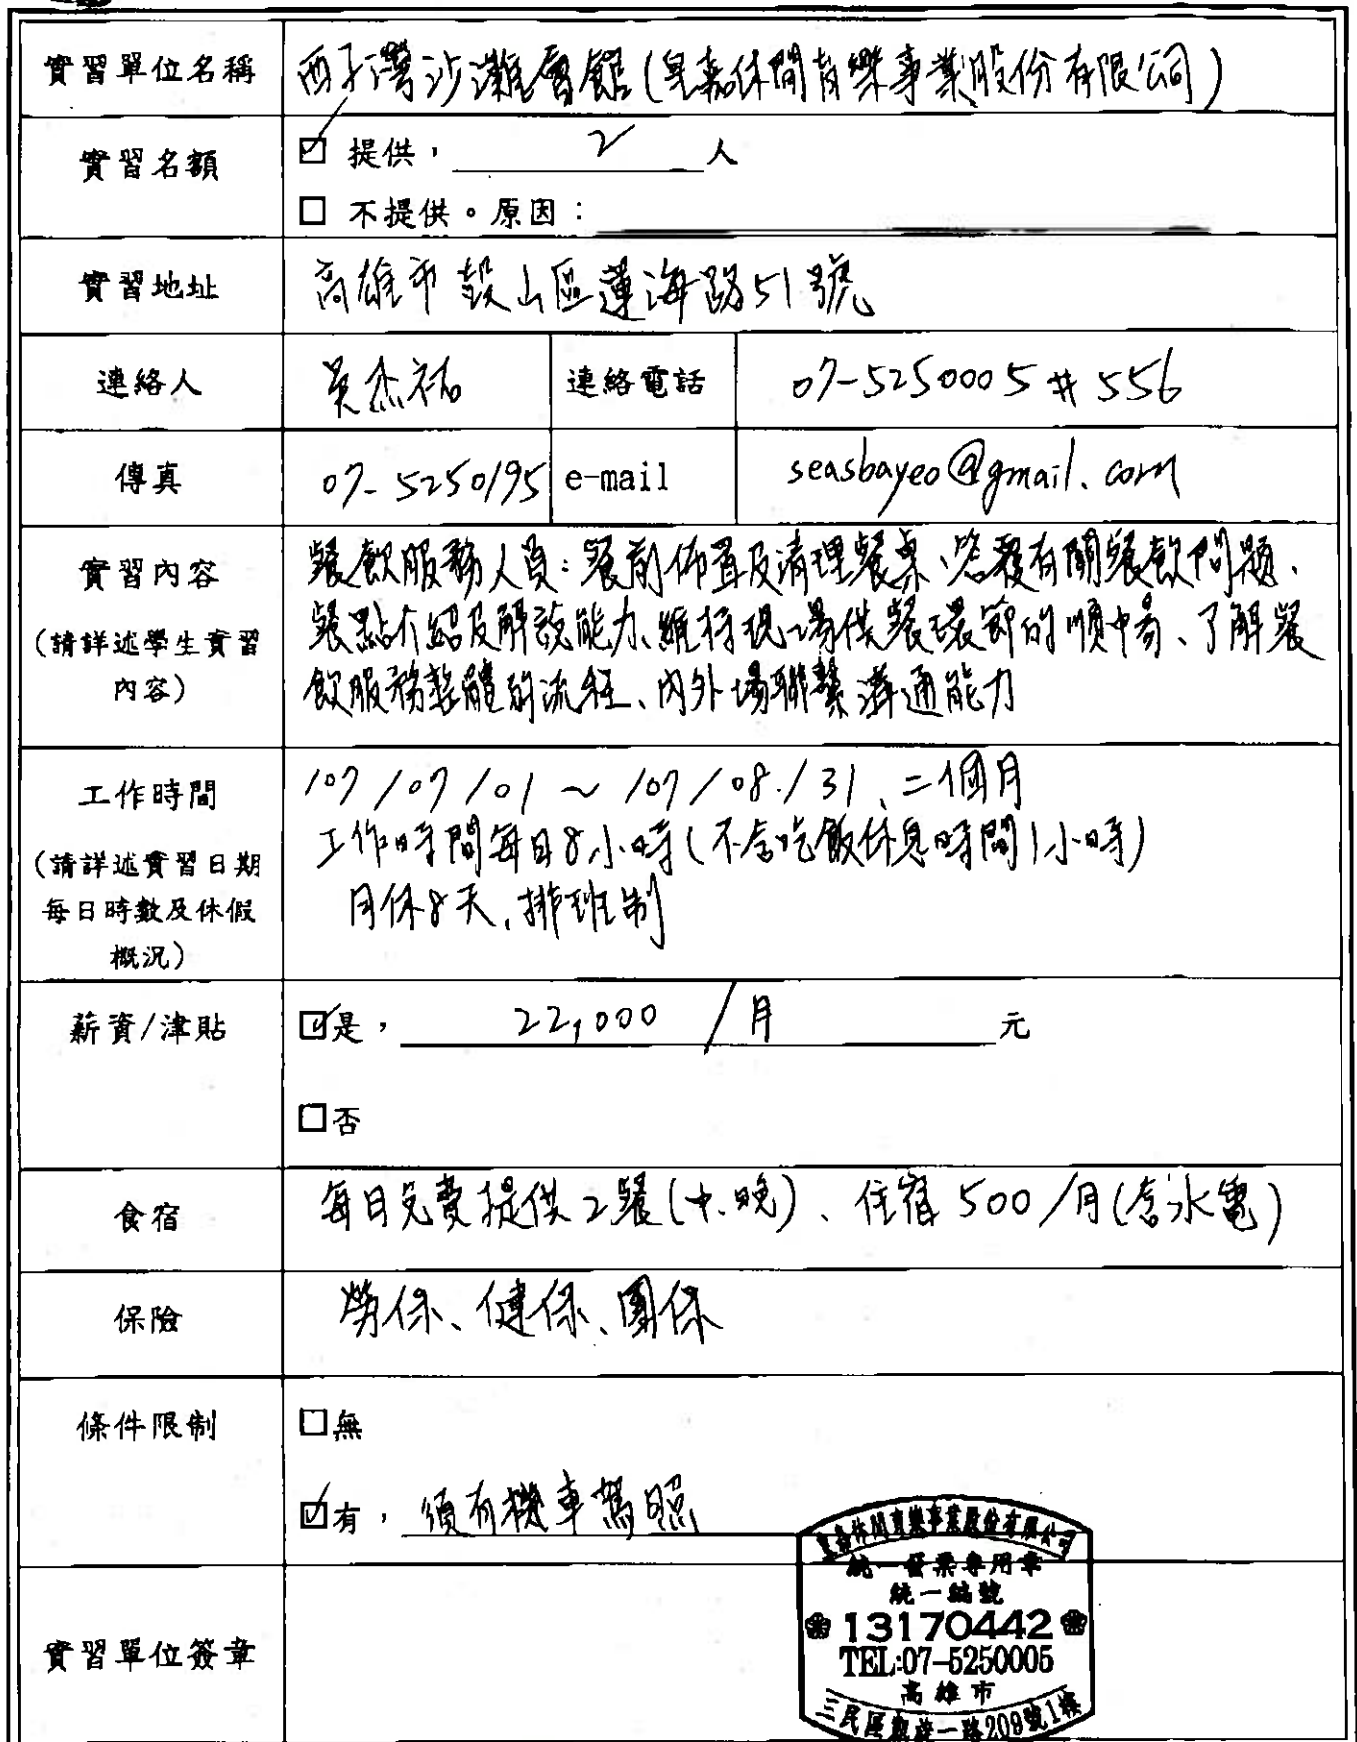 實習單位名稱 西子灣沙灘會館(皇嘉休閒育樂事業股份有限公司)
實習名額 ☑ 提供，2人
□ 不提供。原因：
實習地址 高雄市鼓山區蓮海路51號
連絡人 吳杰祐 連絡電話 07-5250005#556
傳真 07-5250195 e-mail seasbayeo@gmail.com
實習內容 餐飲服務人員:餐前佈置及清理餐桌、答覆有關餐飲問題、
(請詳述學生實習 餐點介紹及解說能力、維持現場供餐環節的順暢、了解餐
內容) 飲服務整體的流程、內外場聯繫溝通能力
工作時間 107/07/01~107/08/31、二個月
(請詳述實習日期 工作時間每日8小時(不含吃飯休息時間1小時)
每日時數及休假 月休8天、排班制
概況)
薪資/津貼 ☑是，22,000/月元
□否
食宿 每日免費提供2餐(中.晚)、住宿500/月(含水電)
保險 勞保、健保、團保
條件限制 □無
☑有，須有機車駕照
實習單位簽章
皇嘉休閒育樂事業股份有限公司
統一發票專用章
統一編號
13170442
TEL:07-5250005
高雄市
三民區凱旋一路209號1樓